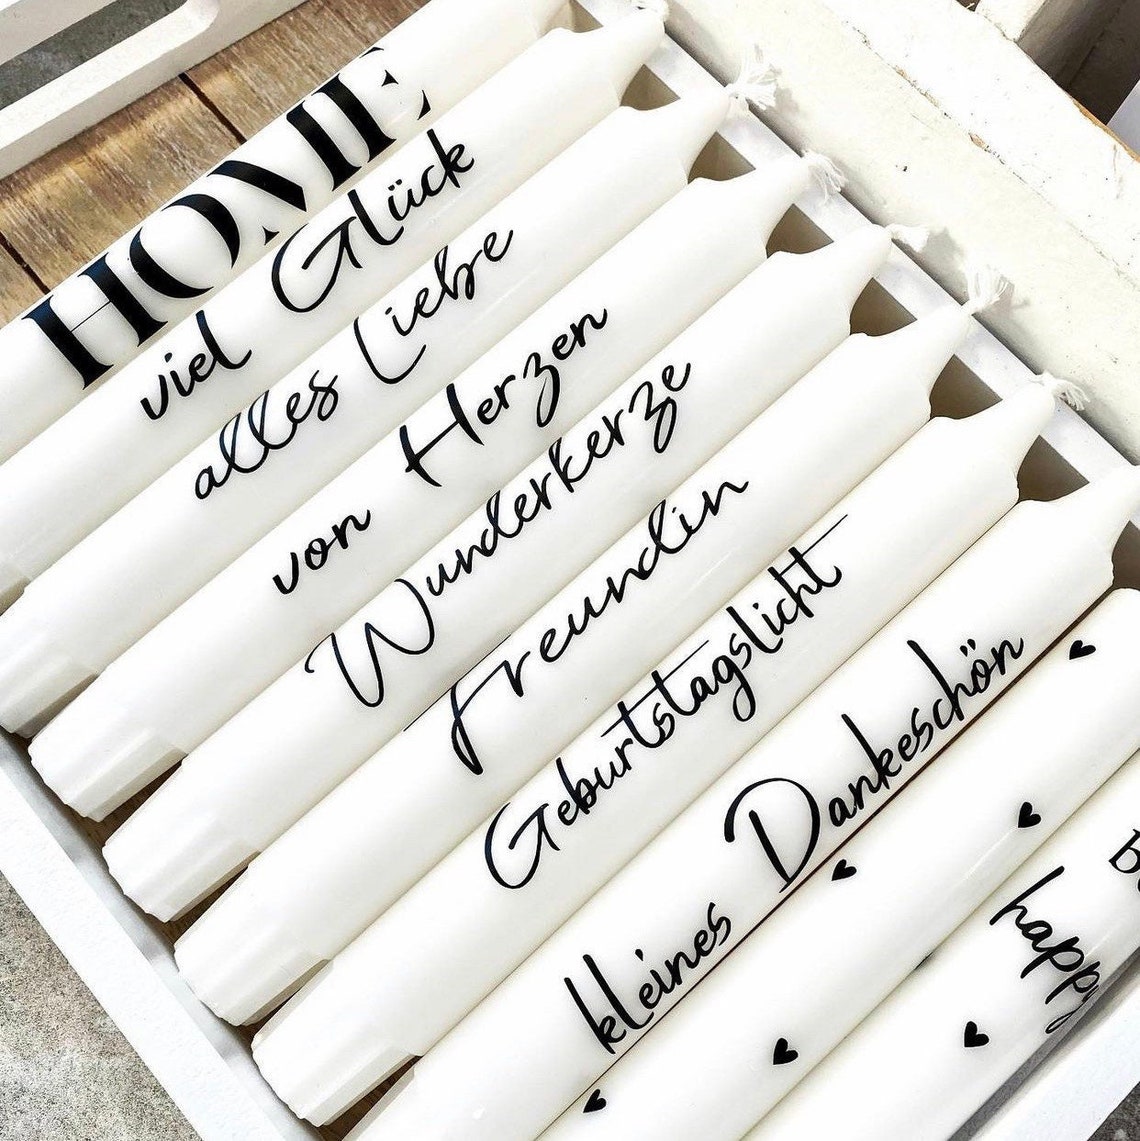 HOME
viel Glück
alles Liebe
von Herzen
Wunderkerze
freundin
Geburtstagslicht
kleines Dankeschön
happy